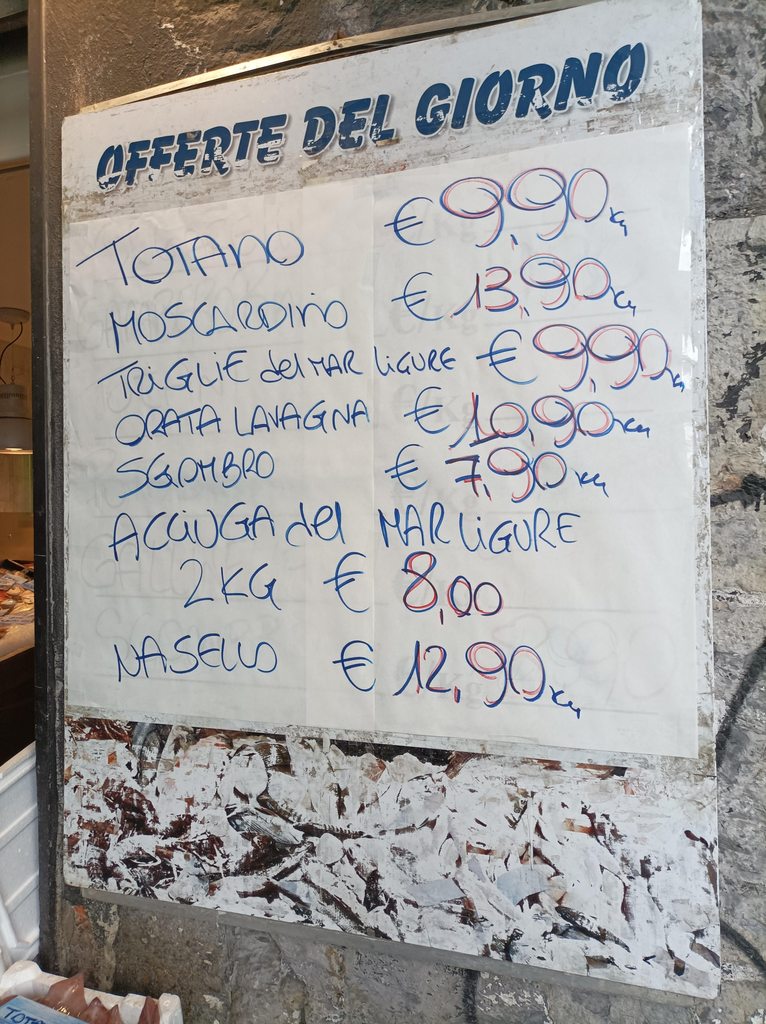 OFFERTE DEL GIORNO
TOTANO € 9,90 Kg
MOSCARDINO € 13,90 Kg
TRIGLIE del MAR LIGURE € 9,90 Kg
ORATA LAVAGNA € 10,90 Kg
SGOMBRO € 7,90 Kg
ACCIUGA del MAR LIGURE
2 KG € 8,00
NASELLO € 12,90 Kg